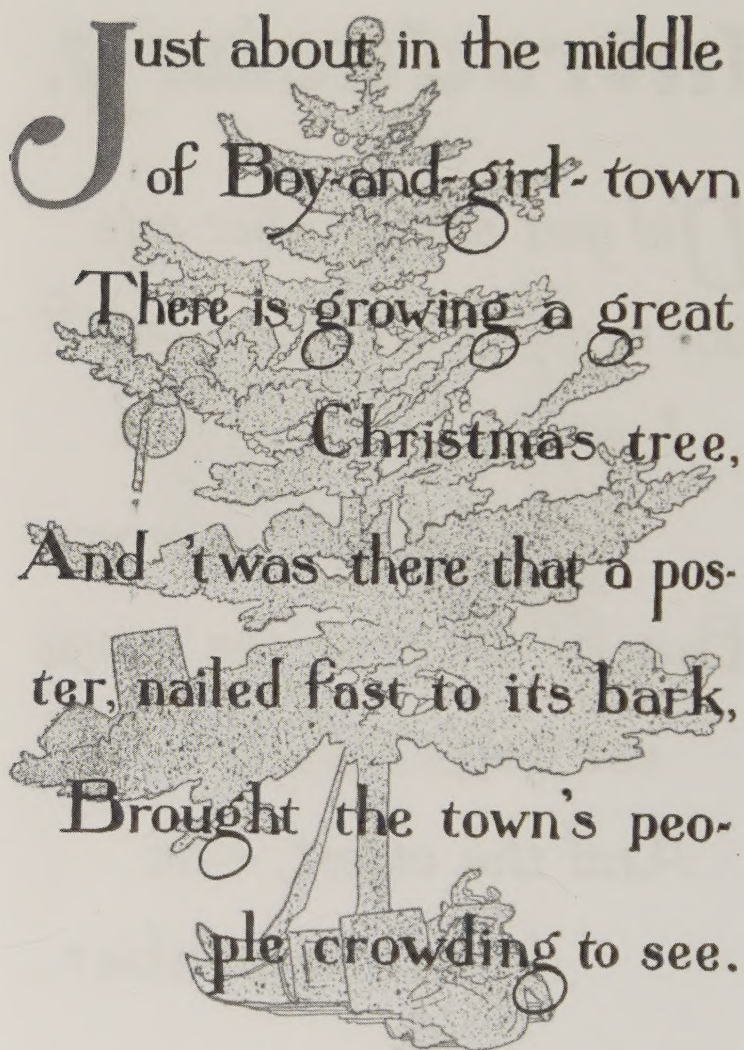 Just about in the middle
of Boy-and-girl-town
There is growing a great
Christmas tree,
And 'twas there that a pos-
ter, nailed fast to its bark,
Brought the town's peo-
ple crowding to see.